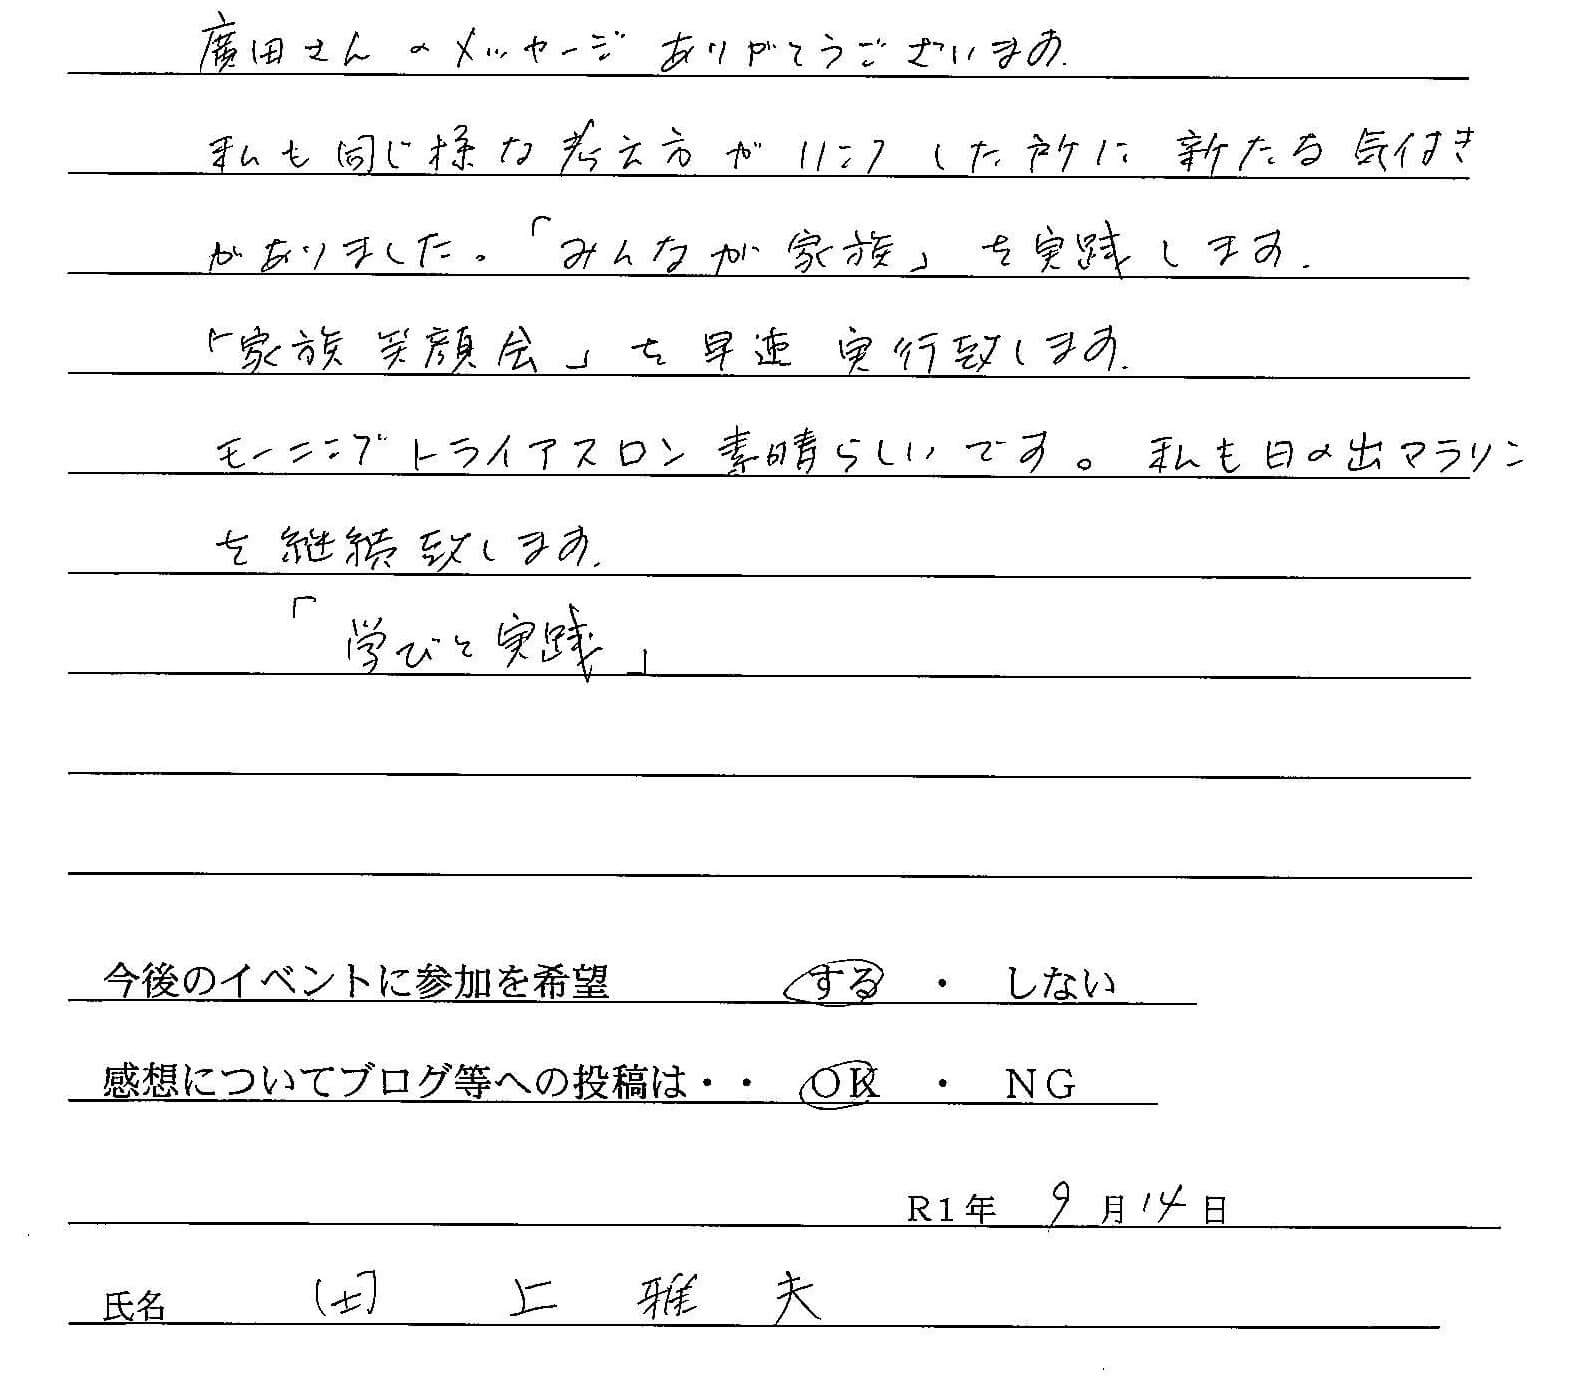 廣田さんのメッセージありがとうございます.
私も同じ様な考え方がリンクした所に新たる気付き
がありました。「みんなが家族」を実践します.
「家族笑顔会」を早速実行致します.
モーニングトライアスロン素晴らしいです。私も日の出マラソン
を継続致します.
「学びと実践」
今後のイベントに参加を希望 する ・ しない
感想についてブログ等への投稿は・・ OK ・ NG
R1年 9月14日
氏名 上 雅夫